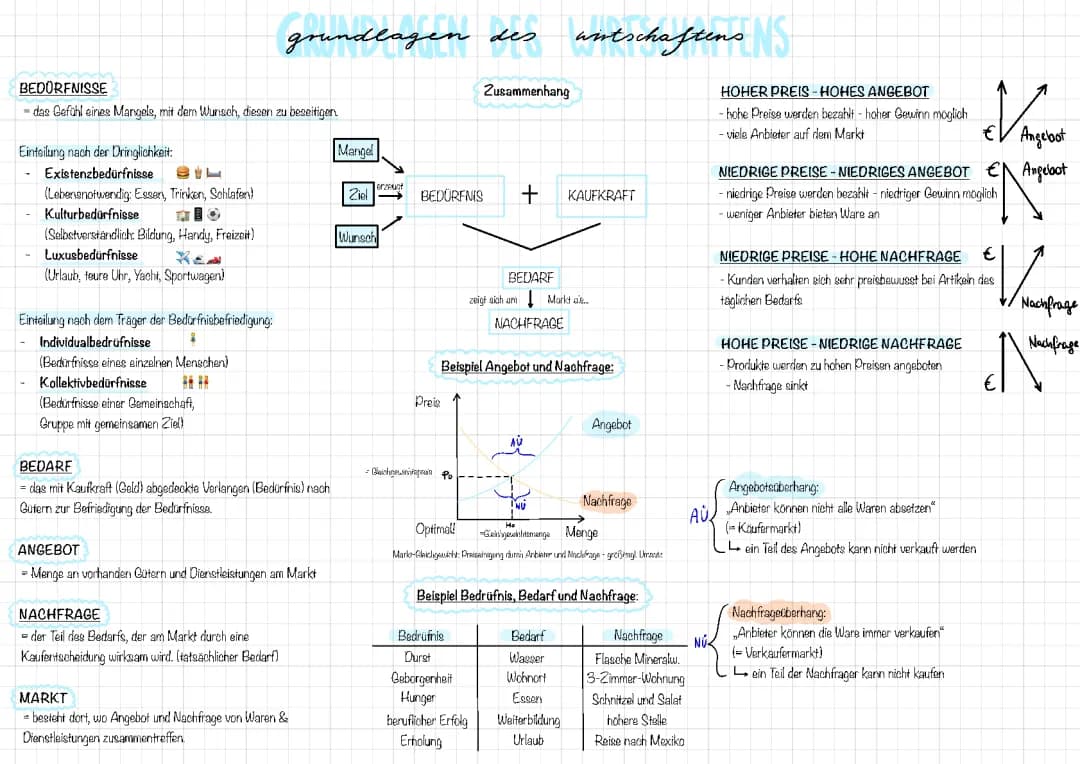 GRUNDLAGEN DES WIRTSCHAFTENS
grundlagen des wirtschaftens
BEDÜRFNISSE
= das Gefühl eines Mangels, mit dem Wunsch, diesen zu beseitigen.
Einteilung nach der Dringlichkeit:
- Existenzbedürfnisse
(Lebensnotwendig: Essen, Trinken, Schlafen)
- Kulturbedürfnisse
(Selbstverständlich: Bildung, Handy, Freizeit)
- Luxusbedürfnisse
(Urlaub, teure Uhr, Yacht, Sportwagen)
Einteilung nach dem Träger der Bedürfnisbefriedigung:
- Individualbedrüfnisse
(Bedürfnisse eines einzelnen Menschen)
- Kollektivbedürfnisse
(Bedürfnisse einer Gemeinschaft,
Gruppe mit gemeinsamen Ziel)
BEDARF
= das mit Kaufkraft (Geld) abgedeckte Verlangen (Bedürfnis) nach
Gütern zur Befriedigung der Bedürfnisse.
ANGEBOT
= Menge an vorhanden Gütern und Dienstleistungen am Markt
NACHFRAGE
= der Teil des Bedarfs, der am Markt durch eine
Kaufentscheidung wirksam wird. (tatsächlicher Bedarf)
MARKT
= besteht dort, wo Angebot und Nachfrage von Waren &
Dienstleistungen zusammentreffen.
Zusammenhang
Mangel
Ziel
Wunsch
erzeugt
BEDÜRFNIS + KAUFKRAFT
BEDARF
zeigt sich am Markt als...
NACHFRAGE
Beispiel Angebot und Nachfrage:
Preis
Angebot
AÜ
= Gleichgewichtspreis Po
NÜ
Nachfrage
Optimal!
Mo
=Gleichgewichtsmenge
Menge
Markt-Gleichgewicht: Preiseinigung durch Anbieter und Nachfrage - größtmgl. Umsatz
Beispiel Bedrüfnis, Bedarf und Nachfrage:
Bedrüfnis Bedarf Nachfrage
Durst Wasser Flasche Mineralw.
Geborgenheit Wohnort 3-Zimmer-Wohnung
Hunger Essen Schnitzel und Salat
beruflicher Erfolg Weiterbildung höhere Stelle
Erholung Urlaub Reise nach Mexiko
HOHER PREIS - HOHES ANGEBOT
- hohe Preise werden bezahlt - hoher Gewinn möglich
- viele Anbieter auf dem Markt
€ Angebot
NIEDRIGE PREISE - NIEDRIGES ANGEBOT
- niedrige Preise werden bezahlt - niedriger Gewinn möglich
- weniger Anbieter bieten Ware an
€ Angebot
NIEDRIGE PREISE - HOHE NACHFRAGE
- Kunden verhalten sich sehr preisbewusst bei Artikeln des
täglichen Bedarfs
€ Nachfrage
HOHE PREISE - NIEDRIGE NACHFRAGE
- Produkte werden zu hohen Preisen angeboten
- Nachfrage sinkt
€ Nachfrage
AÜ
Angebotsüberhang:
„Anbieter können nicht alle Waren absetzen"
(= Käufermarkt)
↳ ein Teil des Angebots kann nicht verkauft werden
NÜ
Nachfrageüberhang:
„Anbieter können die Ware immer verkaufen"
(= Verkäufermarkt)
↳ ein Teil der Nachfrager kann nicht kaufen